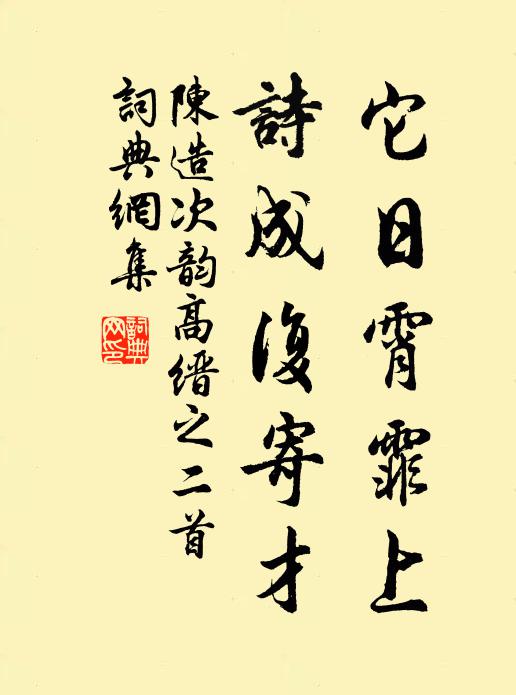 它日霄霏上
詩成復寄才
陳造次韵高縉之二首
詞典網集
詞典網印